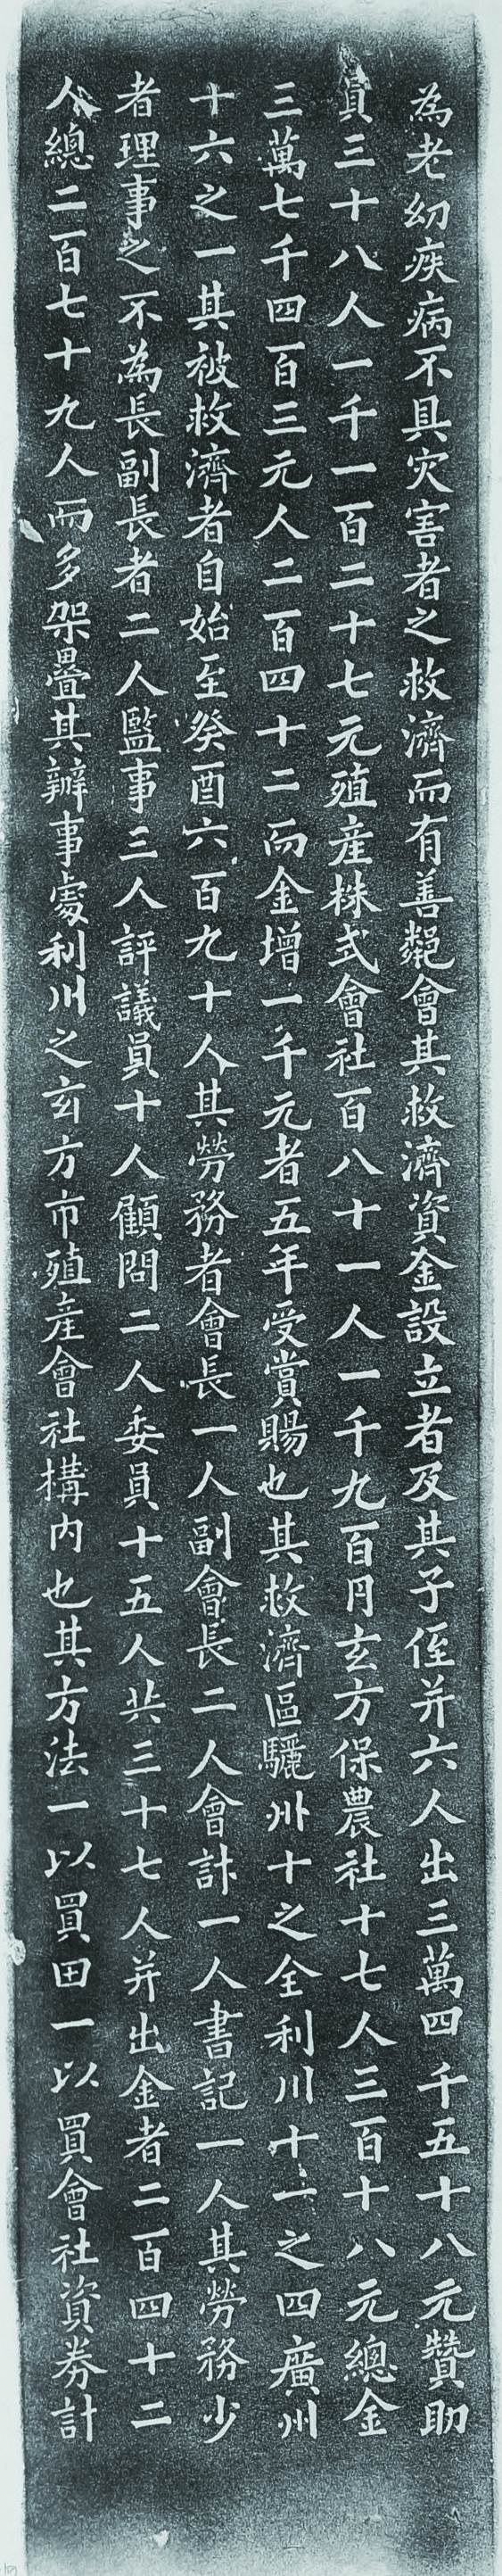 為老幼疾病不具灾害者之救濟而有善槩會其救濟資金設立者及其子侄并六人出三萬四千五十八元贊助
員三十八人一千一百二十七元殖産株式會社百八十一人一千九百円玄方保農社十七人三百十八元總金
三萬七千四百三元人二百四十二而金增一千元者五年受賞賜也其救濟區驪州十之全利川十一之四廣州
十六之一其被救濟者自始至癸酉六百九十人其勞務者會長一人副會長二人會計一人書記一人其勞務少
者理事之不為長副長者二人監事三人評議員十人顧問二人委員十五人共三十七人并出金者二百四十二
人總二百七十九人而多架疊其辦事處利川之玄方市殖産會社構内也其方法一以買田一以買會社資券計